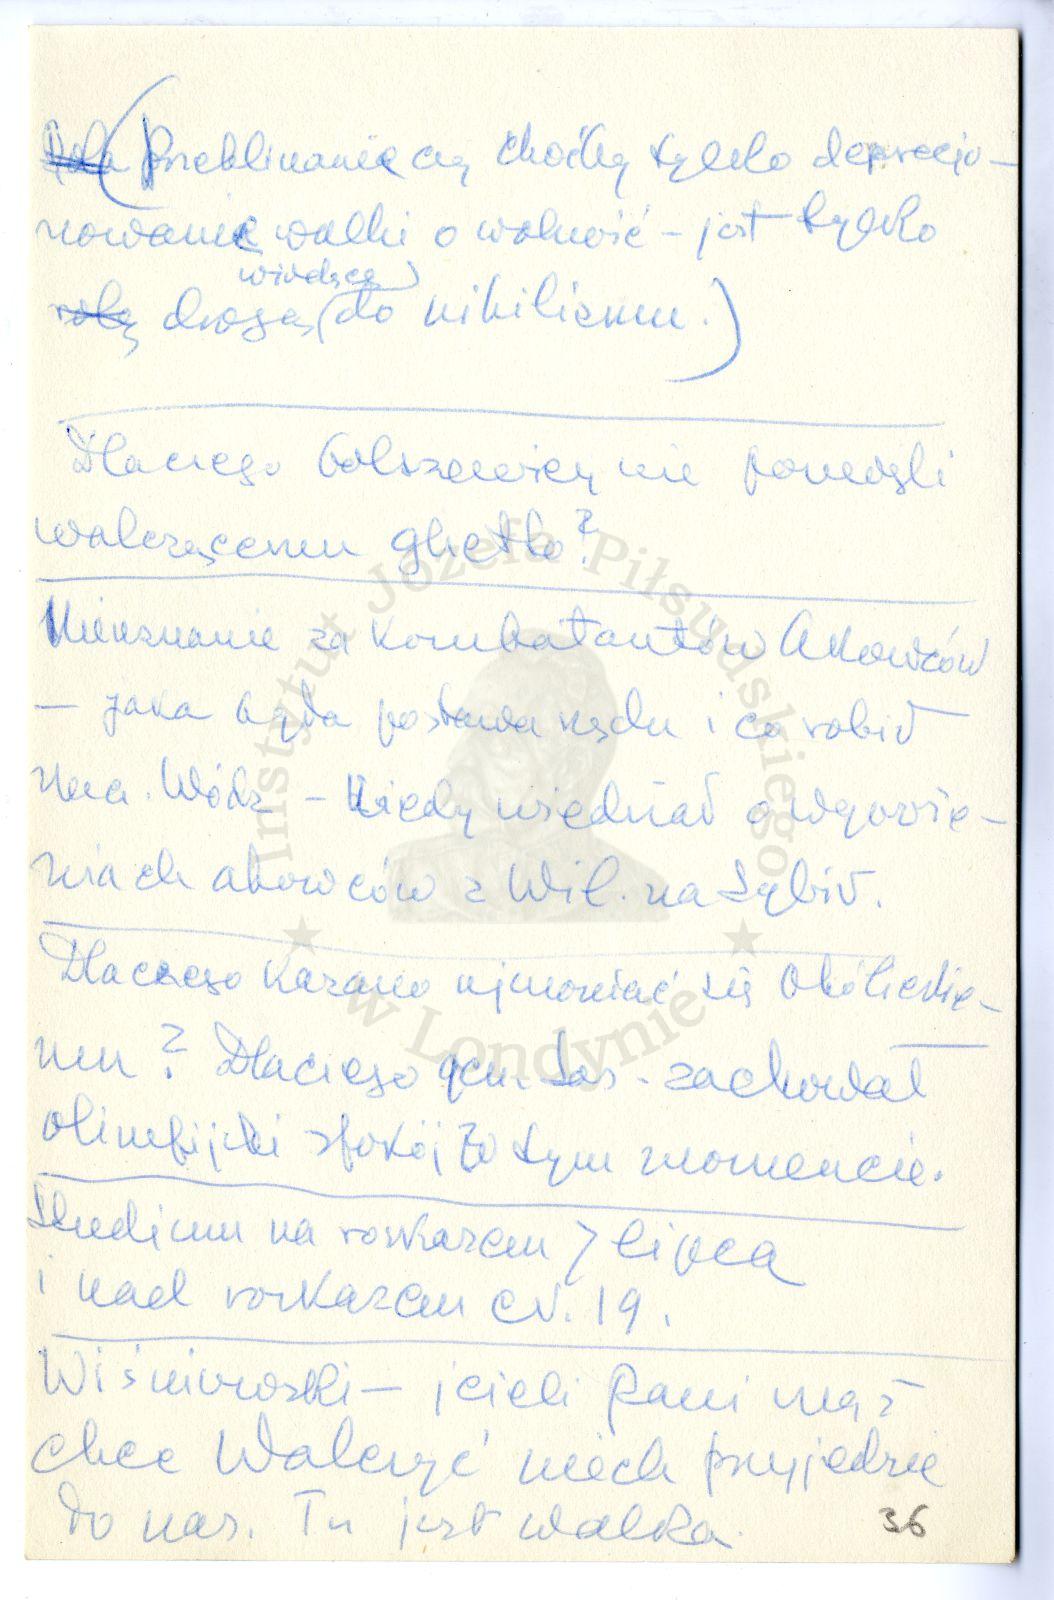 (Przeklinanie czy choćby tylko deprecjo-
nowanie walki o wolność – jest tylko
wiodącą
drogą (do nihilizmu.)
Dlaczego bolszewicy nie pomogli
walczącemu ghetto?
Nieuznanie za kombatantów Akowców
– jaka była postawa rządu i co robił
Nacz. Wódz – Kiedy wiedział o wywozie-
niach akowców z Wil. na Sybir.
Dlaczego kazano ujawniać się Okólickie-
mu? Dlaczego gen. Sos. zachował
olimpijski spokój w tym momencie.
Studium na rozkazem 7 lipca
i nad rozkazem cz. 19.
Wiśniowski – jeżeli Pani mąż
chce Walczyć niech przyjedzie
do nas. Tu jest walka.
36
Instytut Józefa Piłsudskiego
w Londynie